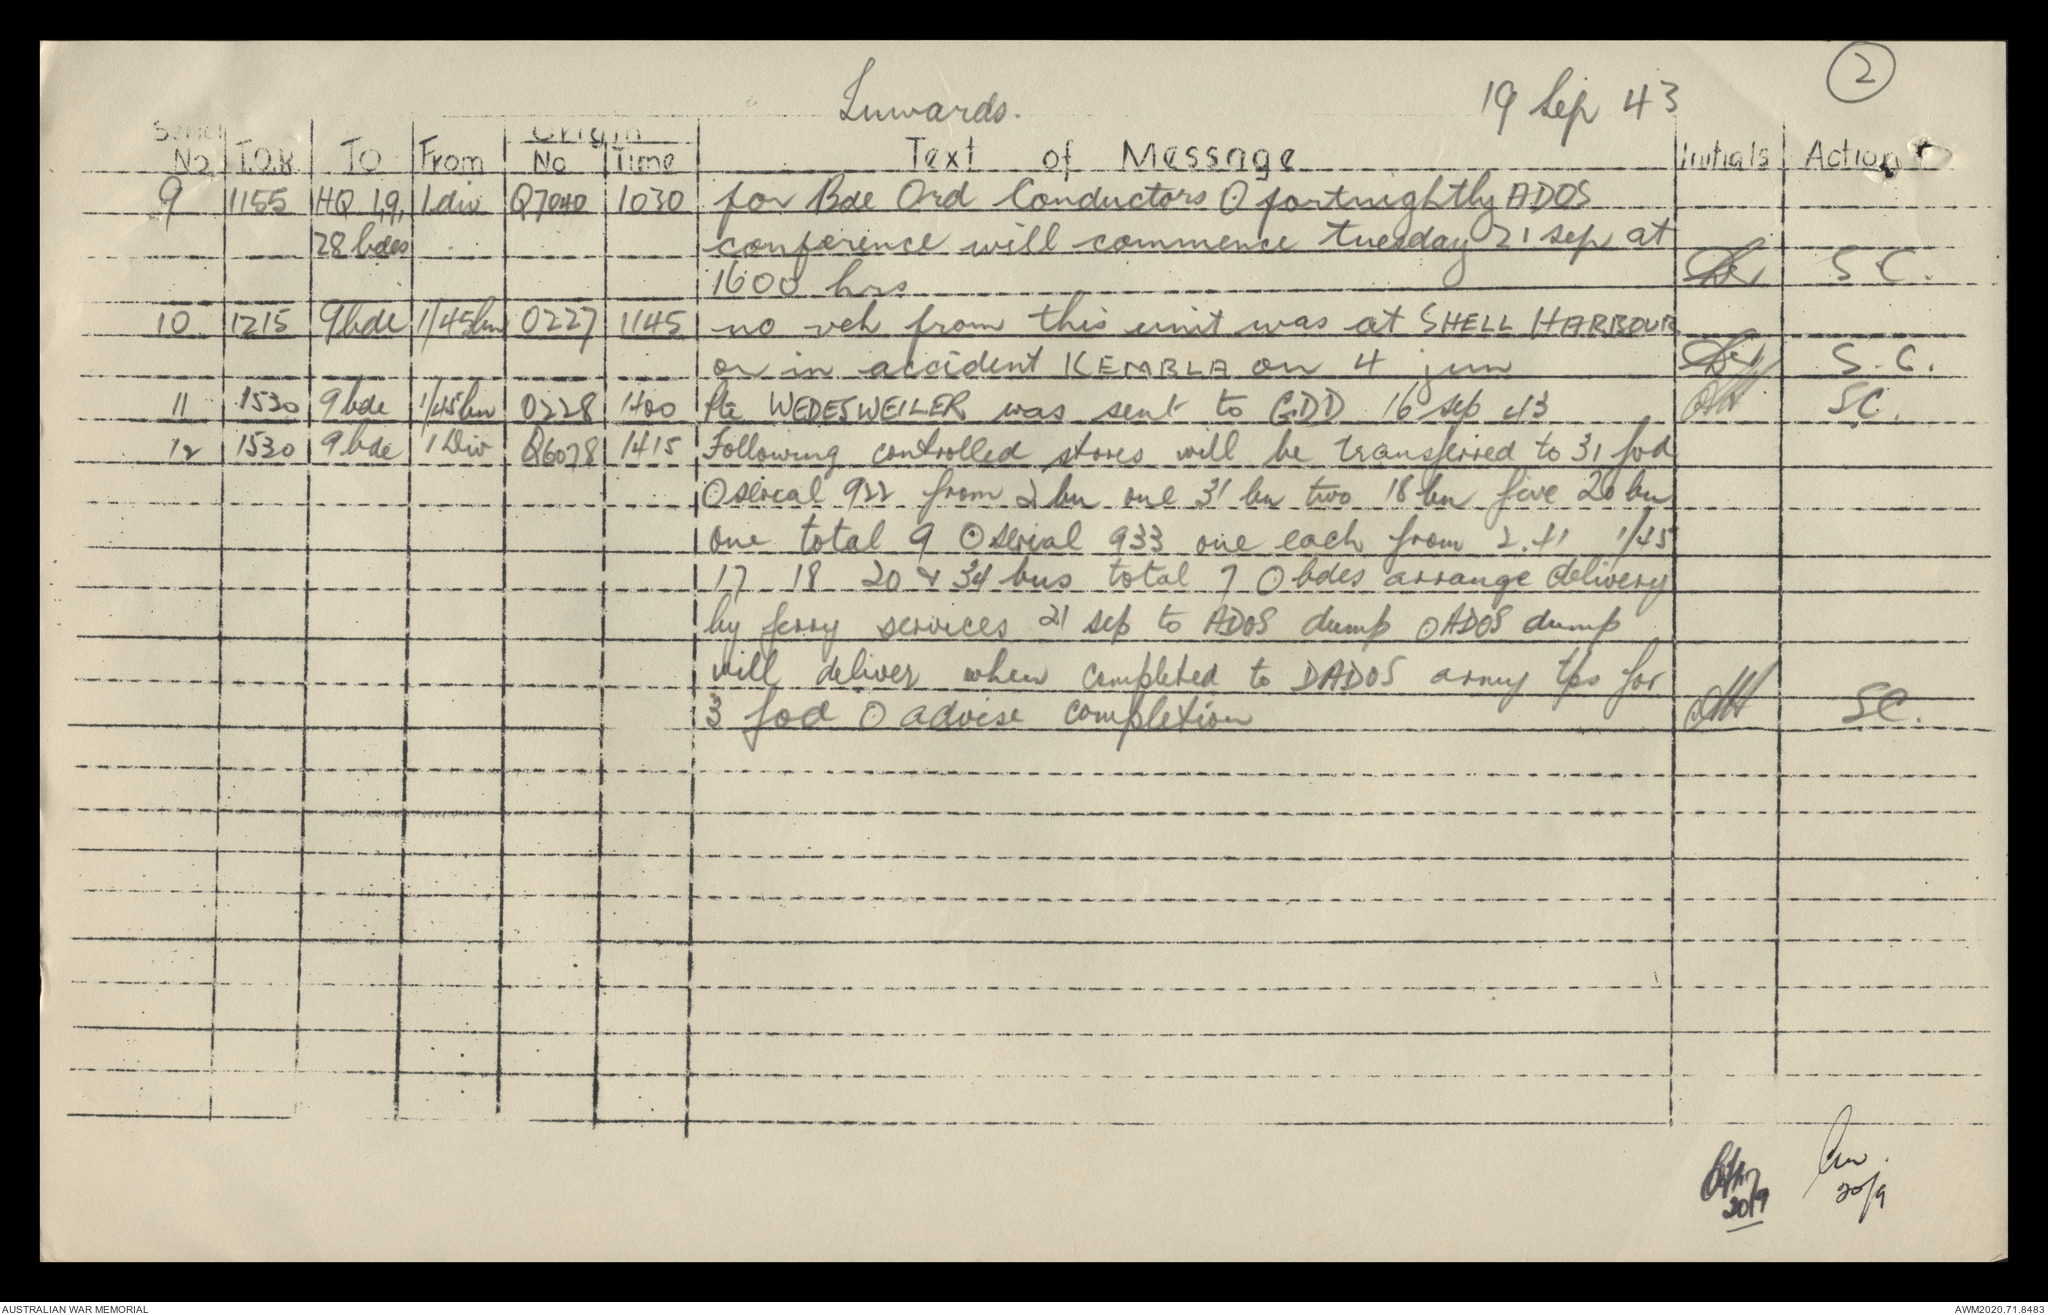 2
Inwards.
19 Sep 43
Serial Origin
No T.O.R TO From No Time Text of Message Initials Action
9 1155 HQ 1,9, 1 div Q7040 1030 for Bde Ord Conductors ⊙ fortnightly ADOS
28 bdes conference will commence tuesday 21 sep at
1600 hrs S C.
10 1215 9 bde 1/45 bn O227 1145 no veh from this unit was at SHELL HARBOUR
or in accident KEMBLA on 4 jun S. C.
11 1530 9 bde 1/45 bn O228 1400 Pte WEDESWEILER was sent to GDD 16 sep 43 SC.
12 1530 9 bde 1 Div Q6078 1415 Following controlled stores will be transferred to 31 fod
⊙ serial 922 from 2 bn one 31 bn two 18 bn five 20 bn
one total 9 ⊙ serial 933 one each from 2. 41 1/45
17 18 20 & 34 bns total 7 ⊙ bdes arrange delivery
by ferry services 21 sep to ADOS dump ⊙ ADOS dump
will deliver when completed to DADOS army tps for
3 fod ⊙ advise completion SC.
20/9 20/9
AUSTRALIAN WAR MEMORIAL AWM2020.71.8483